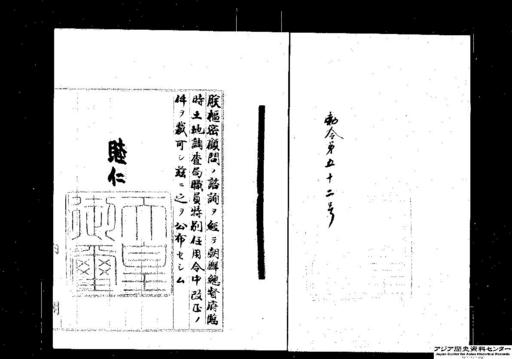 勅令第五十二号
朕枢密顧問ノ諮詢ヲ経テ朝鮮総督府臨
時土地調査局職員特別任用令中改正ノ
件ヲ裁可シ茲ニ之ヲ公布セシム
睦仁
天皇御璽
アジア歴史資料センター
Japan Center for Asian Historical Records